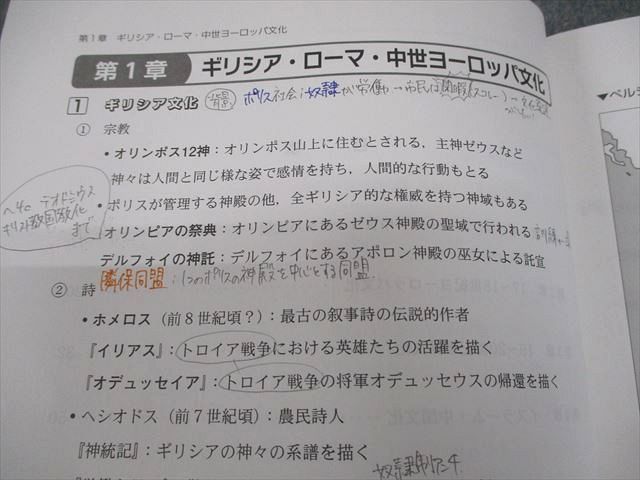 第1章 ギリシア・ローマ・中世ヨーロッパ文化
第1章 ギリシア・ローマ・中世ヨーロッパ文化
1 ギリシア文化 背景 ポリス社会:奴隷が労働→市民は閑暇(スコレー)→
▼ペルシ
① 宗教
・オリンポス12神:オリンポス山上に住むとされる,主神ゼウスなど
神々は人間と同じ様な姿で感情を持ち,人間的な行動もとる
・ポリスが管理する神殿の他,全ギリシア的な権威を持つ神域もある
テオドシウス
キリスト教国教化
まで
オリンピアの祭典:オリンピアにあるゼウス神殿の聖域で行われる 訓練
デルフォイの神託:デルフォイにあるアポロン神殿の巫女による託宣
隣保同盟:1つのポリスの神殿を中心とする同盟
② 詩
・ホメロス(前8世紀頃?):最古の叙事詩の伝説的作者
『イリアス』:トロイア戦争における英雄たちの活躍を描く
『オデュッセイア』:トロイア戦争の将軍オデュッセウスの帰還を描く
・ヘシオドス(前7世紀頃):農民詩人
『神統記』:ギリシアの神々の系譜を描く